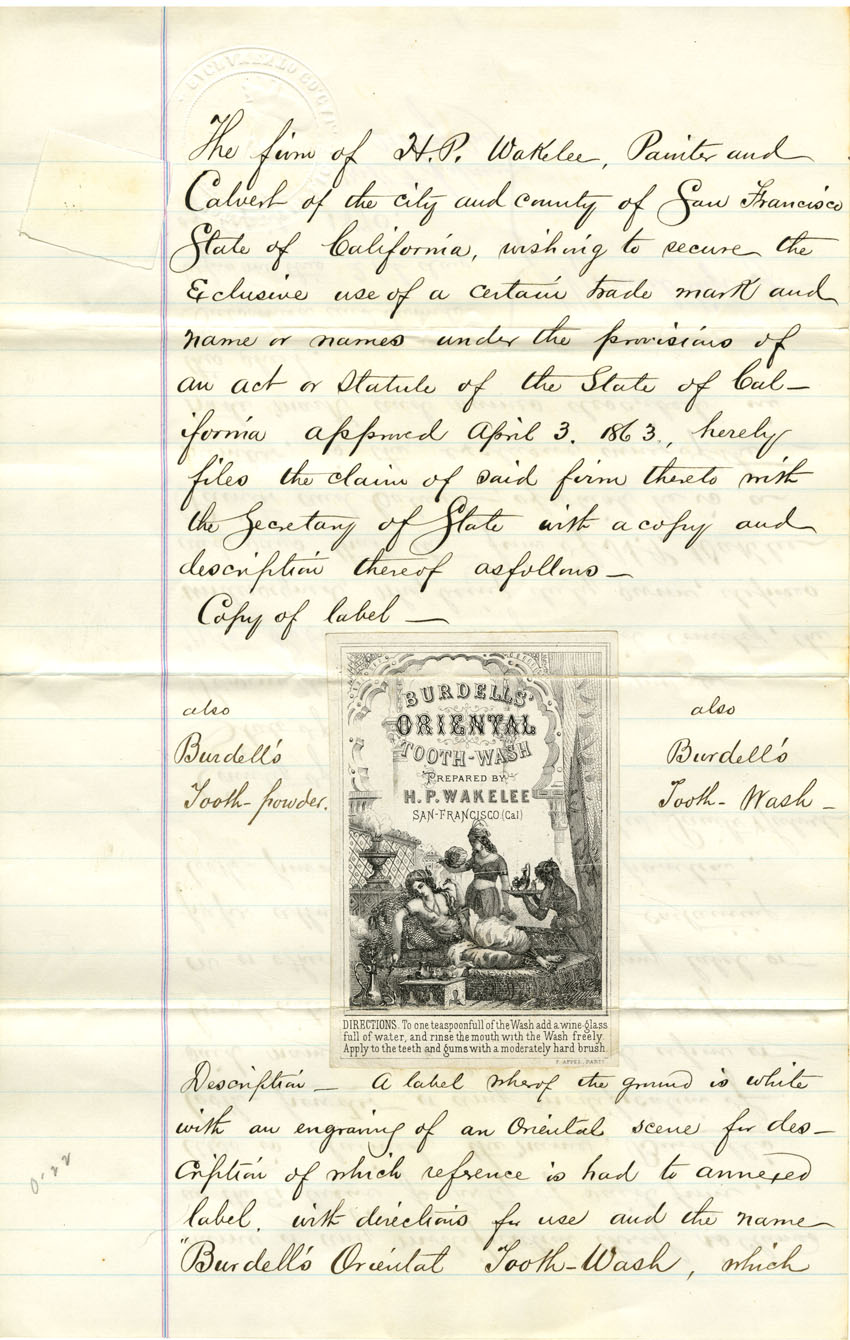 The firm of H.P. Wakelee, Painter and
Calvert of the city and county of San Francisco
State of California, wishing to secure the
Exclusive use of a certain trade mark and
name or names under the provisions of
an act or Statute of the State of Cal–
ifornia approved April 3. 1863, hereby
files the claim of said firm thereto with
the Secretary of State with a copy and
description thereof as follows –
Copy of label –
also
Burdell's
Tooth-powder.
BURDELLS'
ORIENTAL
TOOTH-WASH
PREPARED BY
H.P.WAKELEE
SAN-FRANCISCO (Cal)
DIRECTIONS. To one teaspoonfull of the Wash add a wine-glass
full of water, and rinse the mouth with the Wash freely.
Apply to the teeth and gums with a moderately hard brush.
F. APPEL, PARIS
also
Burdell's
Tooth- Wash –
Description – A label wherof the ground is white
with an engraving of an Oriental scene for des–
cription of which reference is had to annexed
label, with directions for use and the name
"Burdell's Oriental Tooth-Wash, which